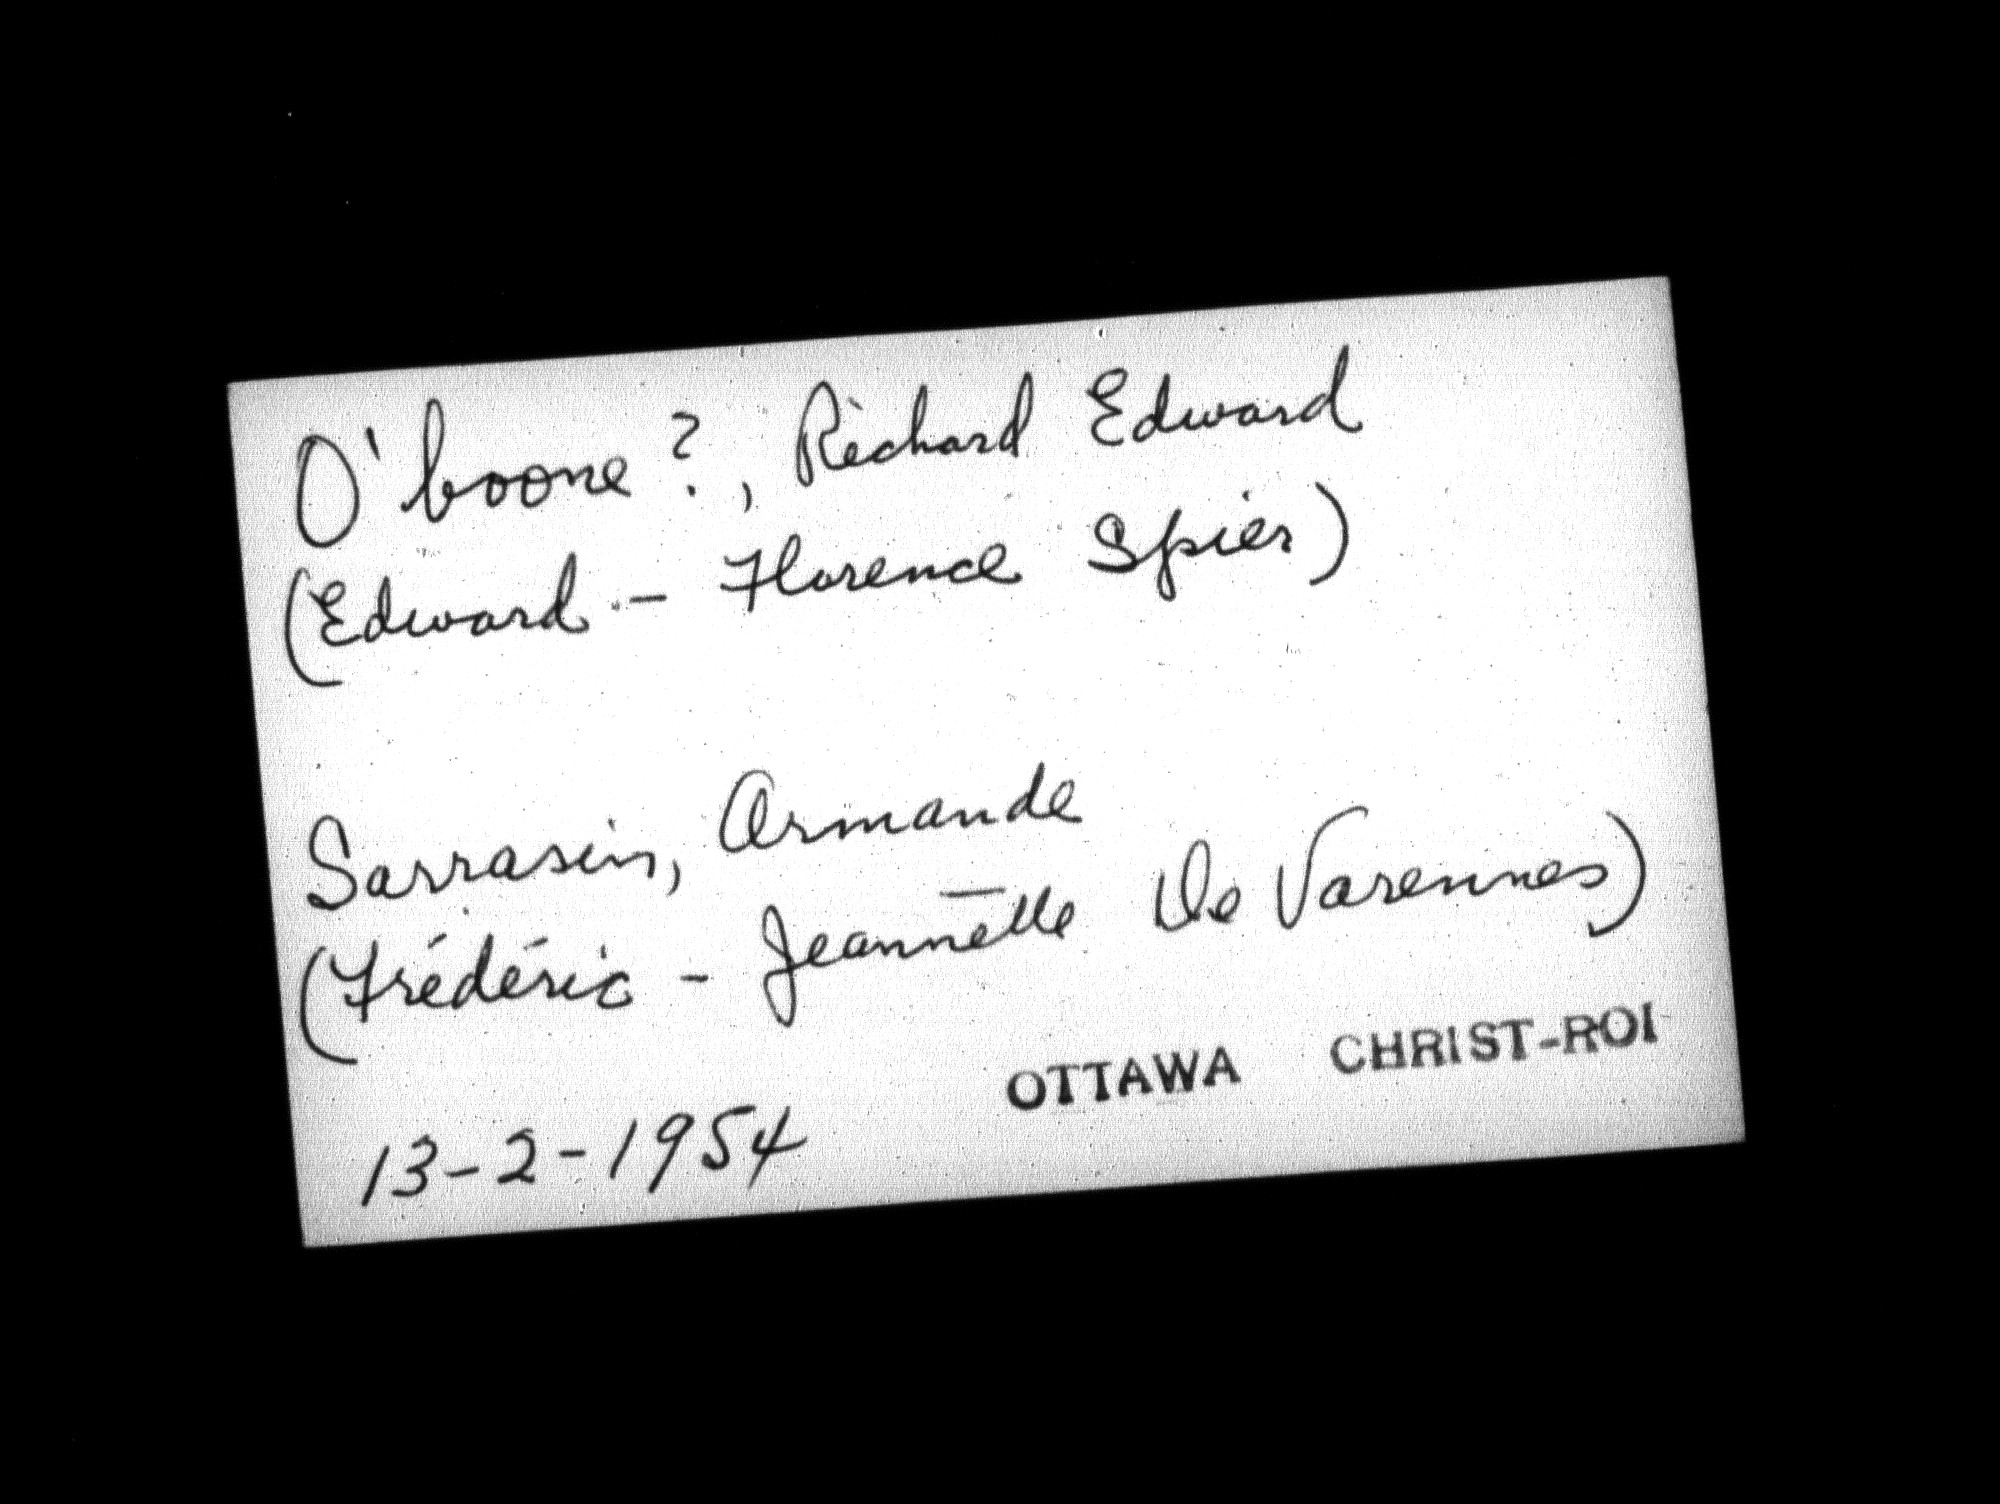 O'boone?, Richard Edward
(Edward - Florence Spier)
Sarrasin, Armande
(Frédéric - Jeannette De Varennes)
OTTAWA CHRIST-ROI
13-2-1954